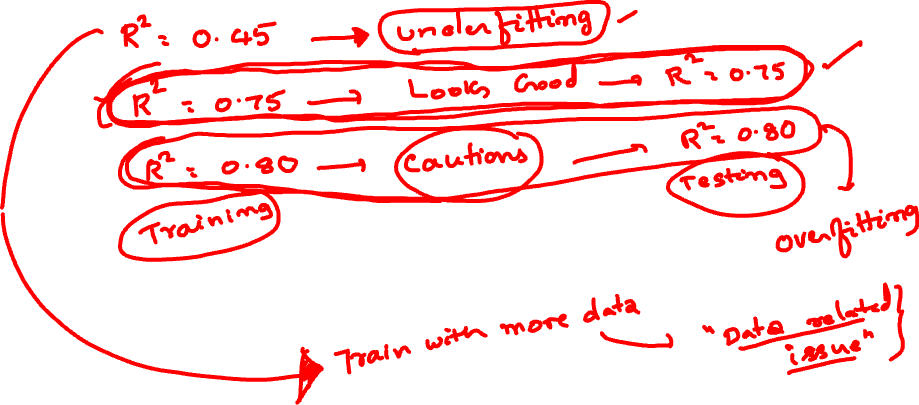 R² = 0.45 → underfitting ✓
R² = 0.75 → Looks Good → R² = 0.75 ✓
R² = 0.80 → Cautions → R² = 0.80
Training
Testing
Overfitting
Train with more data → "Data related
issue"